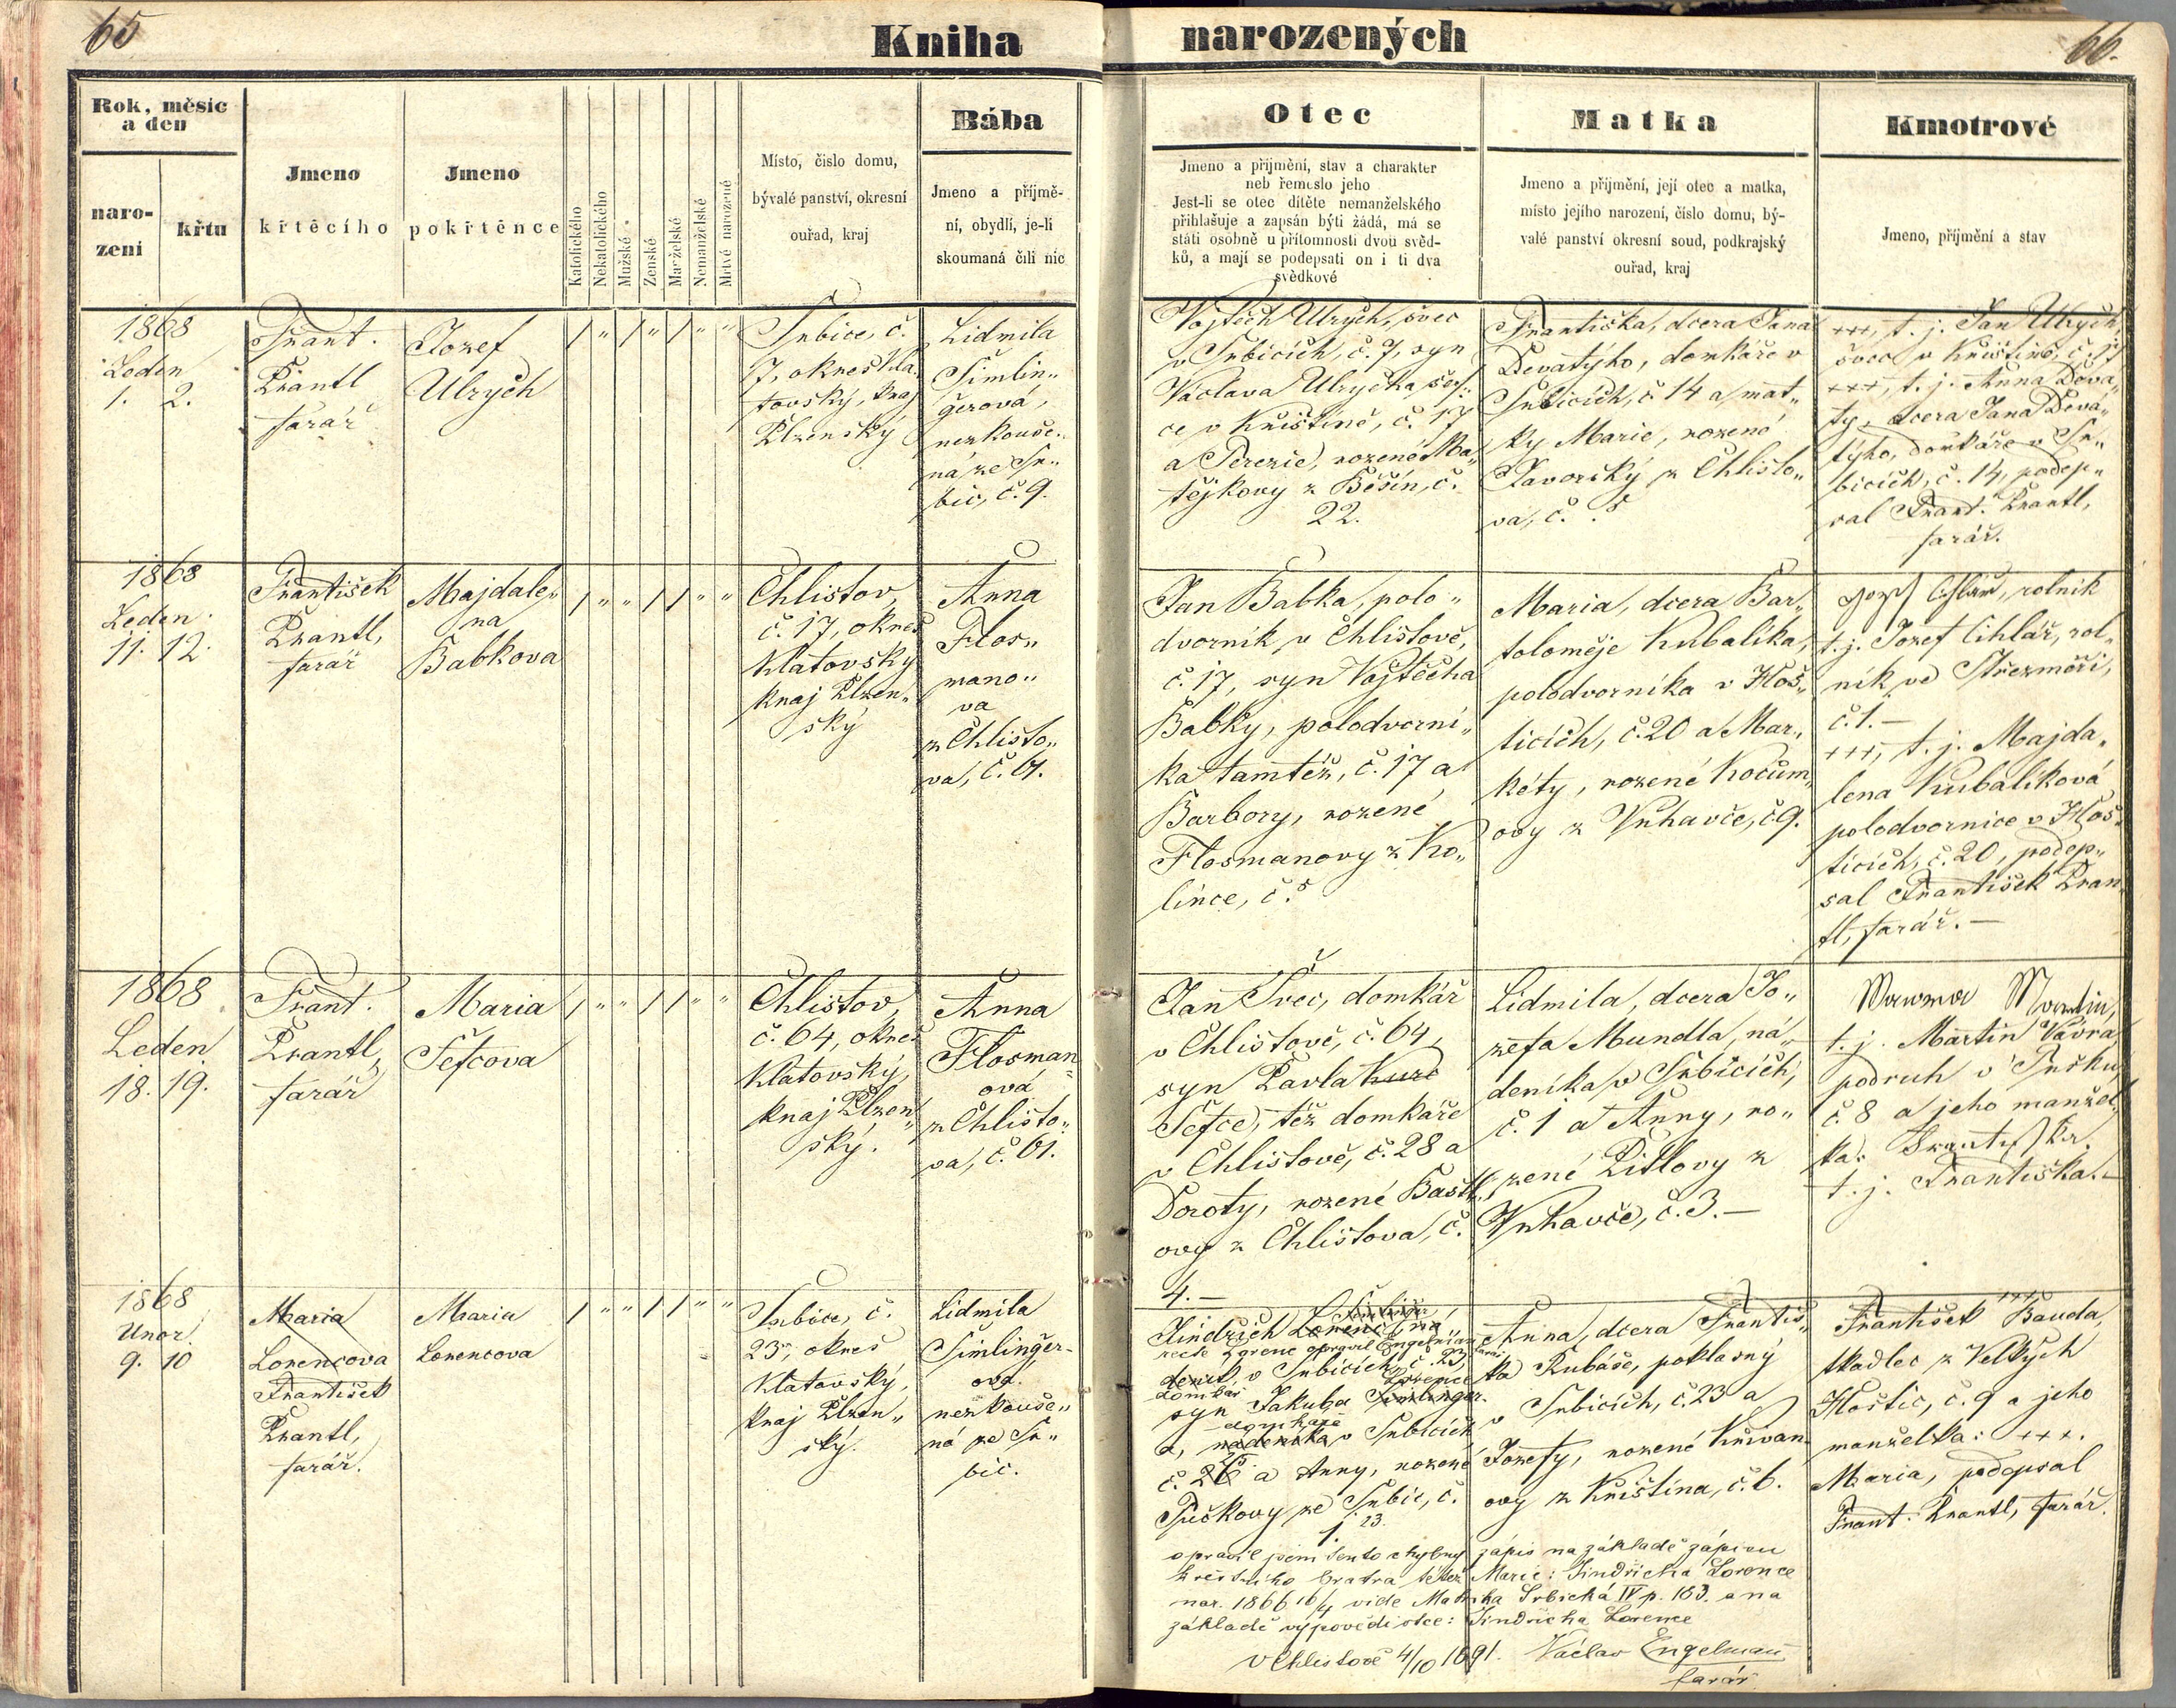 65
Kniha
narozených
66.
Rok, měsíc
a den
naro-
zení
křtu
Jmeno
křtěcího
Jmeno
pokřtěnce
Katolického
Nekatolického
Mužské
Ženské
Manželské
Nemanželské
Mrtvé narozené
Místo, číslo domu,
bývalé panství, okresní
ouřad, kraj
Bába
Jmeno a příjmě-
ní, obydlí, je-li
skoumaná čili nic
Otec
Jmeno a přijmění, stav a charakter
neb řemeslo jeho
Jest-li se otec dítěte nemanželského
přihlašuje a zapsán býti žádá, má se
státi osobně u přítomnosti dvou svěd-
ků, a mají se podepsati on i ti dva
svědkové
Matka
Jmeno a přijmění, její otec a matka,
místo jejího narození, číslo domu, bý-
valé panství okresní soud, podkrajský
ouřad, kraj
Kmotrové
Jmeno, příjmění a stav
1868
Leden
1. 2.
Frant.
Prantl
farář
Jozef
Ulrych
/ " / " / " "
Srbice, č.
7, okres Kla-
tovský, kraj
Plzenský
Lidmila
Šimlin„
gerová,
nezkouše-
ná ze Sr„
bic, č. 9.
Vojtěch Ulrych, švec
v Srbicích, č. 7, syn
Václava Ulrycha, šev-
ce v Křištíně, č. 17
a Terezie, rozené Ma„
tějkovy z Běšin, č.
22.
Františka, dcera Jana
Devátýho, domkáře v
Srbicích, č 14 a mat„
ky Marie, rozené
Javorský z Chlisto„
va, č. 5
+++, t. j. Jan Ulrych,
švec v Křištíně, č. 17
+++, t. j. Anna Devá„
ty, dcera Jana Devá„
týho, domkáře v Sr„
bicích, č. 14, podep„
sal Frant. Prantl,
farář.
1868
Leden
11. 12.
František
Prantl,
farář
Majdale„
na
Babkova
/ " " / / " "
Chlistov,
č. 17, okres
Klatovský
kraj Plzen„
ský
Anna
Flos„
mano„
va
z Chlisto„
va, č. 61.
Jan Babka, polo„
dvorník v Chlistově,
č. 17, syn Vojtěcha
Babky, polodvorní„
ka tamtéž, č. 17 a
Barbory, rozené
Flosmanovy z Ko„
lince, č. 5
Maria, dcera Bar„
toloměje Kubalíka,
polodvorníka v Hoš„
ticích, č. 20 a Mar„
kéty, rozené Kočum„
ovy z Vrhavče, č 9.
Jozef Cihlář, rolník
t. j. Jozef Cihlář, rol„
ník ve Střezměři,
č. 1. —
+++, t. j. Majda„
lena Kubalíková
polodvornice v Hoš„
ticích, č. 20, podep„
sal František Pran„
tl, farář. —
1868
Leden
18. 19.
Frant.
Prantl,
farář
Maria
Šefcova
/ " " / / " "
Chlistov,
č. 64, okres
Klatovský,
kraj Plzen„
ský.
Anna
Flosman„
ová
z Chlisto„
va, č. 61.
Jan Švec, domkář
v Chlistově, č. 64,
syn Pavla
Šefce, též domkáře
v Chlistově, č. 28 a
Doroty, rozené Baštl„
ovy z Chlistova, č.
4. —
Lidmila, dcera Jo„
zefa Mundla, ná„
deníka v Srbicích,
č. 1 a Anny, ro„
zené Pitlovy z
Vrhavče, č. 3. —
Wawra Martin,
t. j. Martin Vávra,
podruh v Tusku,
č. 8 a jeho manžel„
ka:
t. j. Františka. —
1868
Unor
9. 10
Maria
Lorencova
František
Prantl,
farář.
Maria
Lorencova
/ " " / / " "
Srbice, č.
23, okres
Klatovský,
kraj Plzen„
ský.
Lidmila
Šimlinger-
ova.
nezkouše„
ná ze Sr„
bic.
Jindřich Lorenc
recte Lorenc opravil Engelman farář
v Srbicích č. 23,
domkář Lorence
syn Jakuba Šimlinger-
domkáře
a, nádeníka v Srbicích
č. 26 a Anny, rozené
Tučkovy ze Srbic, č.
1. 23.
Anna, dcera Františ„
ka Rubáše, poklasný
v Srbicích, č. 23 a
Jozefy, rozené Křivan„
ovy z Křištína, č. 6.
+++
František Bauda,
tkadlec z Velkých
Hoštic, č. 9 a jeho
manželka: +++.
Maria, podepsal
Frant. Prantl, farář.
opravil jsem tento chybný zápis na základě zápisu
křestního bratra též Marie: Jindřicha Lorence
nar. 1866 16/4 vide Matrika Srbická IV p. 163. a na
základě výpovědi otce: Jindřicha Lorence
V Chlistově 4/10 1891. Václav Engelman
farář